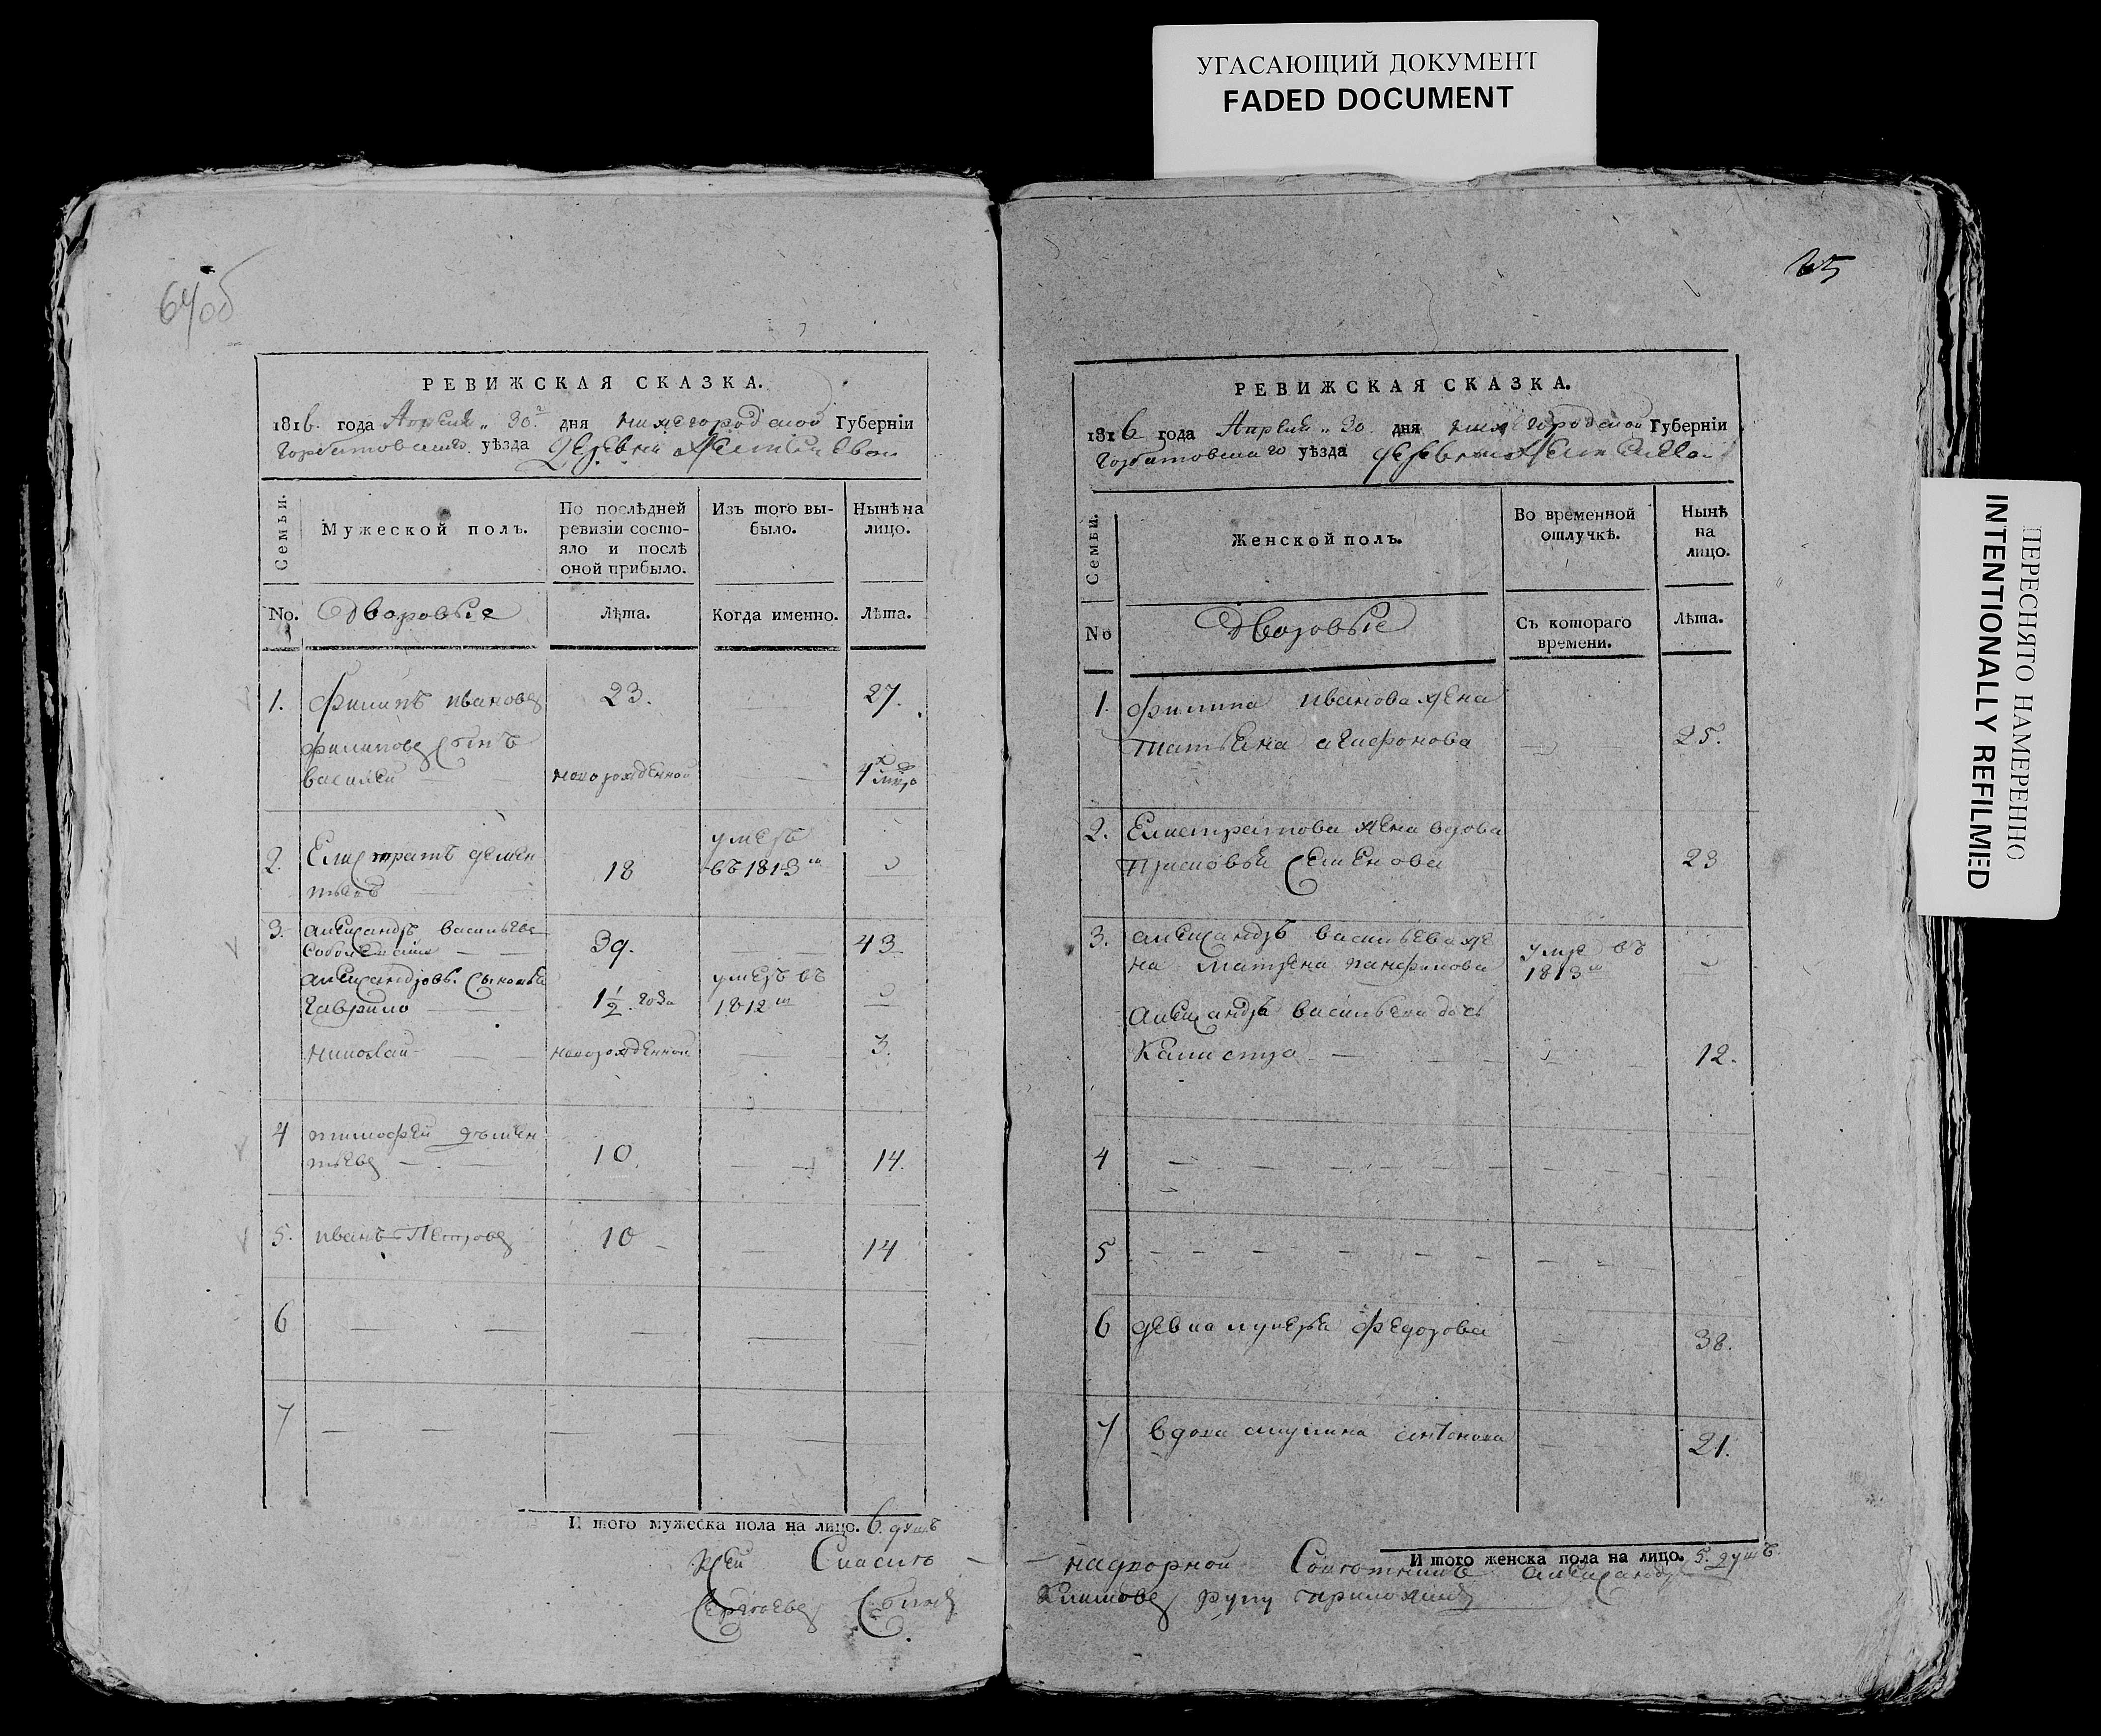 УГАСАЮЩИЙ ДОКУМЕНТ
FADED DOCUMENT
64об
РЕВИЖСКАЯ СКАЗКА.
1816. года Апреля 30. дня нижегородской Губернїи
Горбатовскаго уѣзда Деревни
Семьи.
Мужеской полъ.
По послѣдней ревизїи состо-яло и послѣ оной прибыло.
Изъ того вы-было.
Нынѣ на лицо.
No. Дворовые
Лѣта.
Когда именно.
Лѣта.
1. Филипъ ивановъ 23. 27.
Филиповъ сынъ
василей новорожденной 4
2. Елистратъ демен
тьевъ 18 умеръ въ 1813
3. александръ васильевъ
39. 43
александровы сыновья
гаврило 1 1/2 года умеръ въ 1812
николай новорожденной 3.
4 тимофей демен
тьевъ 10. 14.
5. иванъ Петровъ 10 14
6
7
И того мужеска пола на лицо. 6. душъ
65
РЕВИЖСКАЯ СКАЗКА.
1816 года Апреля 30 дня нижегородской Губернїи
горбатовскаго уѣзда деревни
Семьи.
Женской полъ.
Во временной отлучкѣ.
Нынѣ на лицо.
No
Дворовые
Съ котораго времени.
Лѣта.
1. филипа иванова жена
татьяна 25.
2. Елистратова жена вдова
Семенова 23
3. александръ васильева же
на матрена панфилова умре въ 1813
александра васильева дочь
12.
4
5
6 девка лукерья федорова 38.
7 вдова акулина антонова 21.
И того женска пола на лицо. 5. душъ
надворной Советникъ александръ
Климовъ руку приложилъ
ПЕРЕСНЯТО НАМЕРЕННО
INTENTIONALLY REFILMED